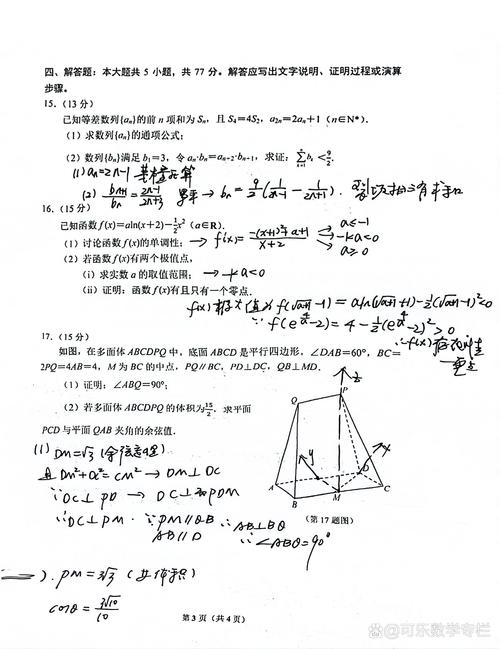 四、解答题：本大题共 5 小题，共 77 分。解答应写出文字说明、证明过程或演算
步骤。
15.（13 分）
已知等差数列{aₙ}的前 n 项和为 Sₙ，且 S₄=4S₂，a₂ₙ=2aₙ+1（n∈N*）.
（1）求数列{aₙ}的通项公式；
（2）数列{bₙ}满足 b₁=3，令 aₙ·bₙ=aₙ₊₂·bₙ₊₁，求证：∑bₖ<9/2.
(1) aₙ=2n-1
(2) bₙ₊₁/bₙ = 2n-1/2n+3 累乘 → bₙ = 9/2(1/2n-1 - 1/2n+1).
16.（15 分）
已知函数 f(x)=aln(x+2)-½x²（a∈R）.
（1）讨论函数 f(x)的单调性； → f'(x)= -(x+1)²+a+1/x+2 → a≤-1
-1<a<0
a≥0
（2）若函数 f(x)有两个极值点，
（i）求实数 a 的取值范围； → -1<a<0
（ii）证明：函数 f(x)有且只有一个零点.
f(x) 极大值为 f(√a+1 -1) = a ln(√a+1 +1) - ½(√a+1 -1)²<0
17.（15 分）
如图，在多面体 ABCDPQ 中，底面 ABCD 是平行四边形，∠DAB=60°，BC=
2PQ=4AB=4，M 为 BC 的中点，PQ∥BC，PD⊥DC，QB⊥MD.
（1）证明：∠ABQ=90°；
（2）若多面体 ABCDPQ 的体积为15/2，求平面
PCD 与平面 QAB 夹角的余弦值.
z
P
Q
y
x
D
A
B
M
C
（第 17 题图）
(1) DM=√3 (余弦定理)
且 DM²+DC²=CM² → DM⊥DC
∵DC⊥PD → DC⊥面PDM
∵DC⊥PM. ∵PM∥QB ∴AB⊥BQ
AB∥D
∴∠ABQ=90°
). PM=3√3
cosθ = 3√10/10
第 3 页（共 4 页）
@可乐数学专栏